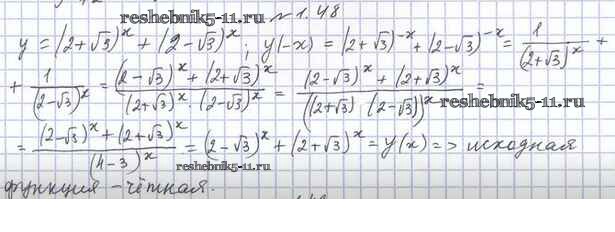 reshebnik5-11.ru № 1.48
y = (2+√3)^x + (2-√3)^x; y(-x) = (2+√3)^-x + (2-√3)^-x = 1/(2+√3)^x +
+ 1/(2-√3)^x = ((2-√3)^x + (2+√3)^x)/((2+√3)^x · (2-√3)^x) = ((2-√3)^x + (2+√3)^x)/((2+√3) · (2-√3))^x =
reshebnik5-11.ru
= ((2-√3)^x + (2+√3)^x)/(4-3)^x = (2-√3)^x + (2+√3)^x = y(x) => исходная
reshebnik5-11.ru
функция - чётная.